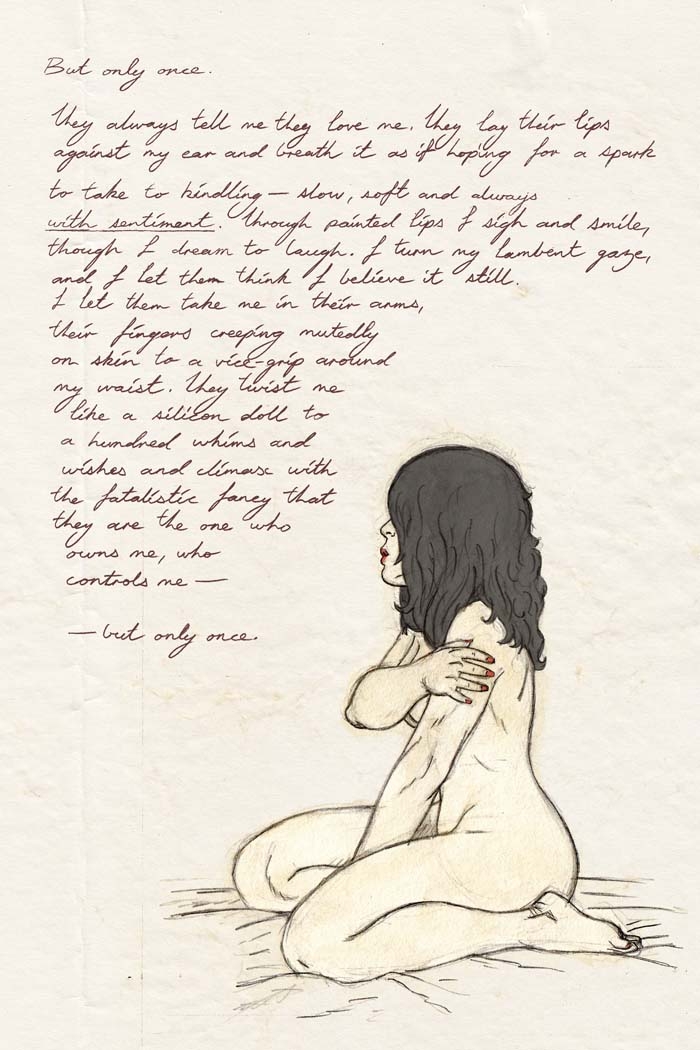 But only once.
They always tell me they love me. They lay their lips
against my ear and breath it as if hoping for a spark
to take to kindling — slow, soft and always
with sentiment. Through painted lips I sigh and smile,
though I dream to laugh. I turn my lambent gaze,
and I let them think I believe it still.
I let them take me in their arms,
their fingers creeping mutedly
on skin to a vice-grip around
my waist. They twist me
like a silicon doll to
a hundred whims and
wishes and climax with
the fatalistic fancy that
they are the one who
owns me, who
controls me —
— but only once.